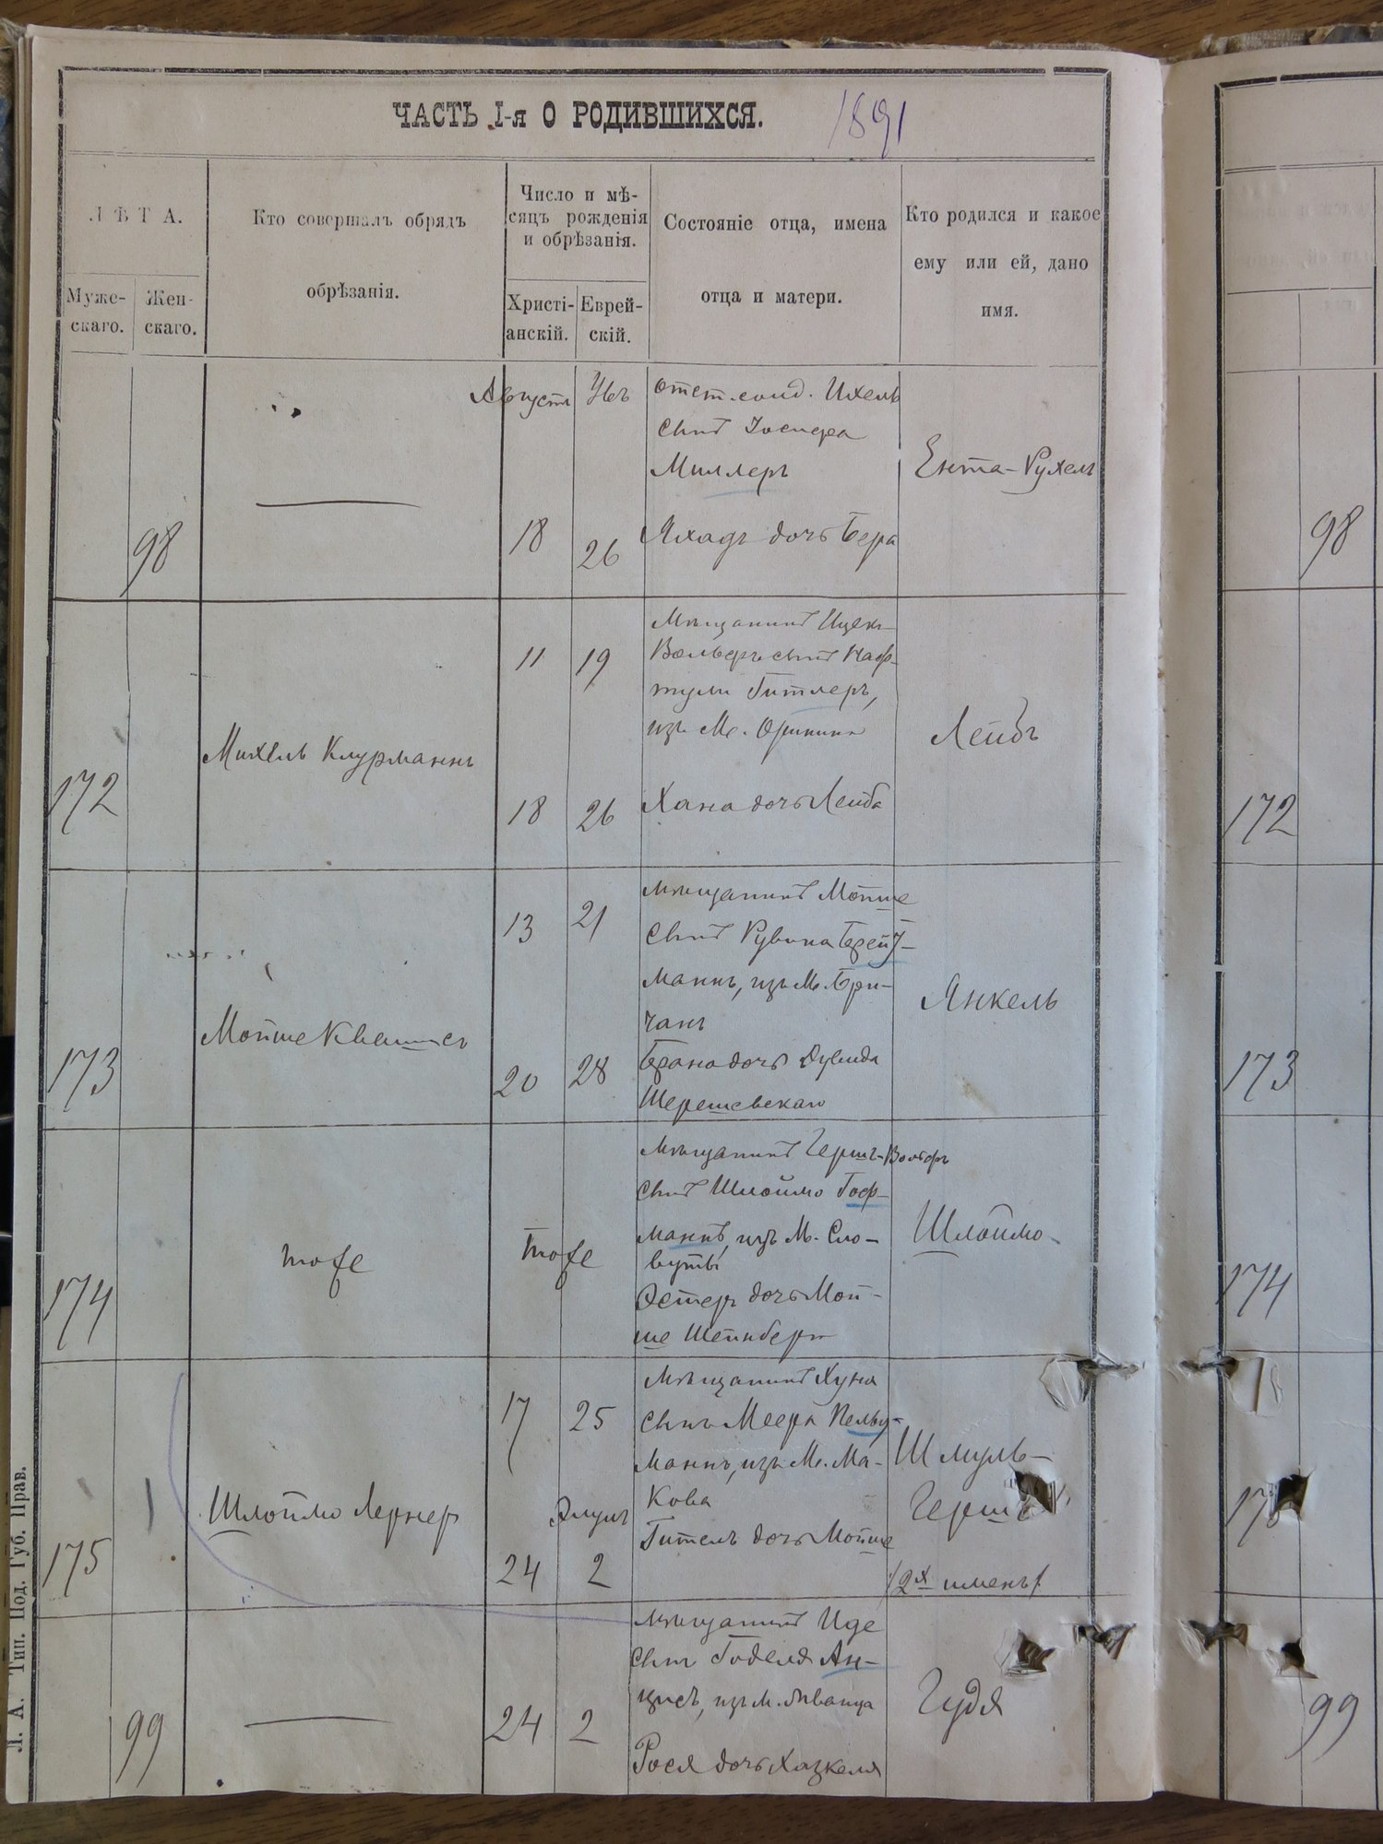 ЧАСТЬ I-я О РОДИВШИХСЯ. 1891
ЛѢТА.
Муже-
скаго.
Жен-
скаго.
Кто совершалъ обрядъ
обрѣзанія.
Число и мѣ-
сяцъ рожденія
и обрѣзанія.
Христі-
анскій.
Еврей-
скій.
Состояніе отца, имена
отца и матери.
Кто родился и какое
ему или ей, дано
имя.
98
Августъ
18
26
отст. солд. Ихель
сынъ Іосифа
Миллеръ
дочь Бера
Ента-Рухель
98
172
Михель Клурманнъ
11 19
18 26
Мѣщанинъ Ицекъ-
Вольфъ сынъ Наф-
тули Гитлеръ,
изъ м. Оринина
Хана дочь Лейба
Лейбъ
172
173
Мойше Квашъ
13 21
20 28
мѣщанинъ Мойше
сынъ Рувина Брейт-
манъ, изъ м. Бри-
чанъ
Брана дочь Дувида
Шерешевскаго
Янкель
173
174
тоже
тоже
мѣщанинъ Гершъ-Вольфъ
сынъ Шлоймо Гоф-
манъ, изъ м. Сло-
вуты
Эстеръ дочь Мой-
ше Шейнберга
Шлоймо
174
175
Шлоймо Лернеръ
17 25
Элулъ
24 2
Мѣщанинъ Хуна
сынъ Меера
манъ, изъ м. Ма-
кова
Гителъ дочь Мойше
Шмуль-
Гершъ
(2х именъ)
99
24 2
мѣщанинъ Иде
сынъ Годеля Ан-
изъ м. Жванца
Рося дочь Хазкеля
Гудя
99
Л. А. Тип. Под. Губ. Прав.